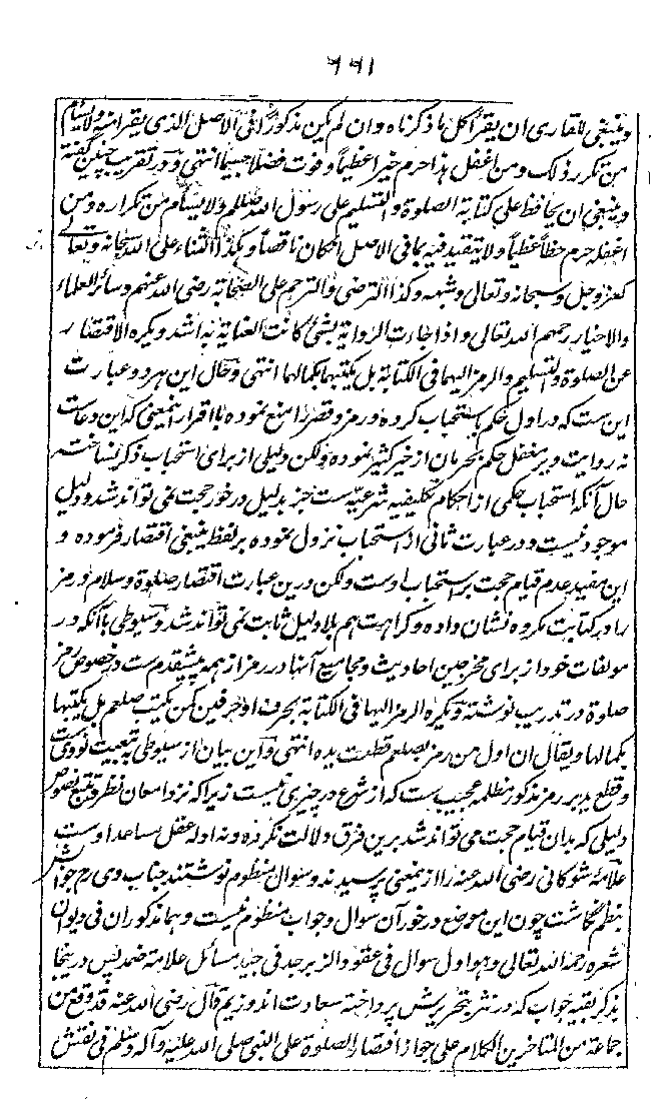 ٦٩١
وینبغی للقاری ان یقرأ کل ما ذکرناه وان لم یکن مذکورا فی الاصل الذی یقرا منه ولا یسأم
من تکرر ذلک ومن اغفل هذا حرم خیرا عظیماً و فوت فضلا جسیما انتهی و در تقریب چنین گفته
وینبغی ان یحافظ علی کتابة الصلوة والتسلیم علی رسول الله صللم ولا یسأم من تکراره ومن
اغفله حرم حظاً عظیماً ولا یتقید فیه بما فی الاصل ان کان ناقصاً و هکذا الثناء علی الله سبحانه وتعالی
کعز وجل و سبحانه وتعالی وشبهه وکذا الترضی والترحم علی الصحابة رضی الله عنهم وسائر العلماء
والاخیار رحمهم الله تعالی و اذا جاءت الروایة بشئ کانت العنایة به اشد ویکره الاقتصار
عن الصلوة والتسلیم والرمز الیهما فی الکتابة بل یکتبهما بکمالهما انتهی و حال این هر دو عبارت
این ست که در اول حکم باستحباب کرده و رمز و قصر را منع نموده با اقرار بمعنی که این دعاست
نه روایت و بر مغفل حکم بحرمان از خیر کثیر نموده ولکن دلیلی از برای استحباب ذکر نساخته
حال آنکه استحباب حکمی از احکام تکلیفیه شرعیه ست جز بدلیل در خور حجت نمی تواند شد و دلیل
موجود نیست و در عبارت ثانی از استحباب نزول نموده بر لفظ ینبغی اقتصار فرموده و
این مفید عدم قیام حجت بر استحباب اوست ولکن درین عبارت اقتصار صلوة وسلام و رمز
را در کتابت مکروه نشان داده و کراهت هم بلا دلیل ثابت نمی تواند شد و سیوطی با آنکه در
مولفات خود از برای مخرجین احادیث و مجامیع آنها در رمز از همه پیشقدم ست در خصوص رمز
صلوة در تدریب نوشته ویکره الرمز الیهما فی الکتابة بحرف او حرفین کمن یکتب صلعم بل یکتبهما
بکمالهما ویقال ان اول من رمز بصلعم قطعت یده انتهی و این بیان از سیوطی به تبعیت نووی ست
و قطع ید بر رمز مذکور مظلمه عجیب ست که از شرع در چیزی نیست زیرا که نزد امعان نظر و تتبع نصوص
دلیلی که بدان قیام حجت می تواند شد برین فرق دلالت نکرده و نه ادله عقل مساعد اوست
علامه شوکانی رضی الله عنه را ازینمعنی پرسیدند و سوال منظوم نوشتند جناب وی رح جوابش
بنظم نگاشت چون این موضع در خور آن سوال وجواب منظوم نیست و هما مذکوران فی دیوان
شعره رحمه الله تعالی وهو اول سوال فی عقود الزبرجد فی جید مسائل علامة ضمد پس درینجا
بذکر بقیه جواب که در نثر بتحریرش پرداخته سعادت اندوزیم قال رضی الله عنه قد وقع من
جماعة من المتاخرین الکلام علی جواز اقتصار الصلوة علی النبی صلی الله علیه وآله وسلم فی نقش